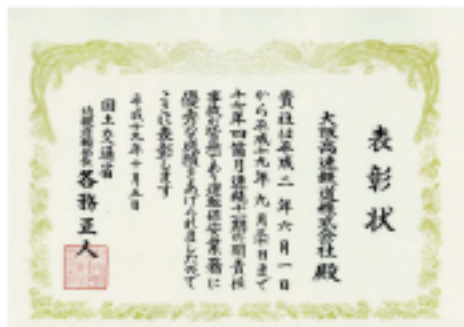 表彰状
大阪高速鉄道株式会社殿
貴社は平成二年六月一日
から平成十九年九月三十日まで
十七年四箇月連続十二期の間責任
事故が皆無であり運転保安業務に
優秀な成績をあげられましたので
ここに表彰します
平成十九年十月五日
国土交通省
各務正人